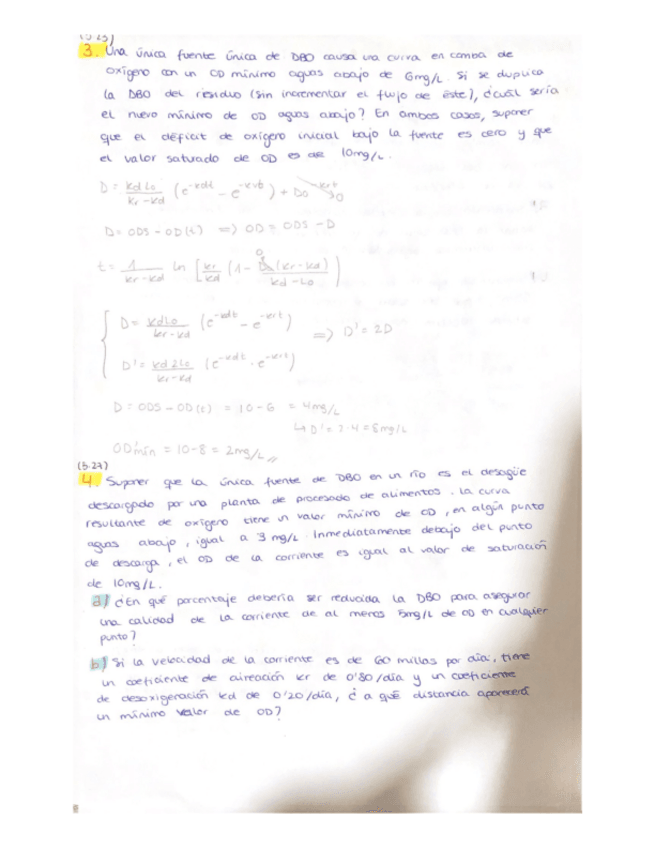 (5.25)
3. Una única fuente única de DBO causa una curva en comba de
oxígeno con un OD mínimo aguas abajo de 6mg/L. Si se duplica
la DBO del residuo (sin incrementar el flujo de éste), ¿cuál sería
el nuevo mínimo de OD aguas abajo? En ambos casos, suponer
que el déficit de oxígeno inicial bajo la fuente es cero y que
el valor saturado de OD es de 10mg/L.
D = kdLo/kr-kd (e^-kdt - e^-krt) + Do e^-krt → 0
D = ODS - OD(t) => OD = ODS - D
t = 1/kr-kd ln [kr/kd (1 - Do(kr-kd)/kd-Lo)]
D = kdLo/kr-kd (e^-kdt - e^-krt)
=> D' = 2D
D' = kd2Lo/kr-kd (e^-kdt - e^-krt)
D = ODS - OD(t) = 10-6 = 4mg/L
↳ D' = 2·4 = 8mg/L
OD'mín = 10-8 = 2mg/L
(5.27)
4. Suponer que la única fuente de DBO en un río es el desagüe
descargado por una planta de procesado de alimentos. La curva
resultante de oxígeno tiene un valor mínimo de OD, en algún punto
aguas abajo, igual a 3 mg/L. Inmediatamente debajo del punto
de descarga, el OD de la corriente es igual al valor de saturación
de 10mg/L.
a) ¿En qué porcentaje debería ser reducida la DBO para asegurar
una calidad de la corriente de al menos 5mg/L de OD en cualquier
punto?
b) Si la velocidad de la corriente es de 60 millas por día, tiene
un coeficiente de aireación kr de 0'80/día y un coeficiente
de desoxigeración kd de 0'20/día, ¿a qué distancia aparecerá
un mínimo valor de OD?